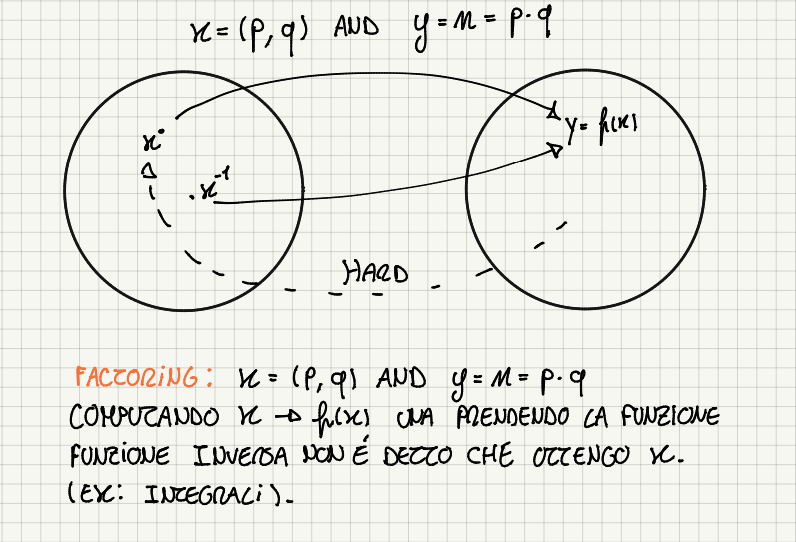 x = (p, q) AND y = n = p · q
x
. x⁻¹
y = f(x)
HARD
FACTORING: x = (p, q) AND y = n = p · q
COMPUTANDO x → f(x) UNA PRENDENDO LA FUNZIONE
FUNZIONE INVERSA NON É DETTO CHE OTTENGO x.
(EX: INTEGRALI).